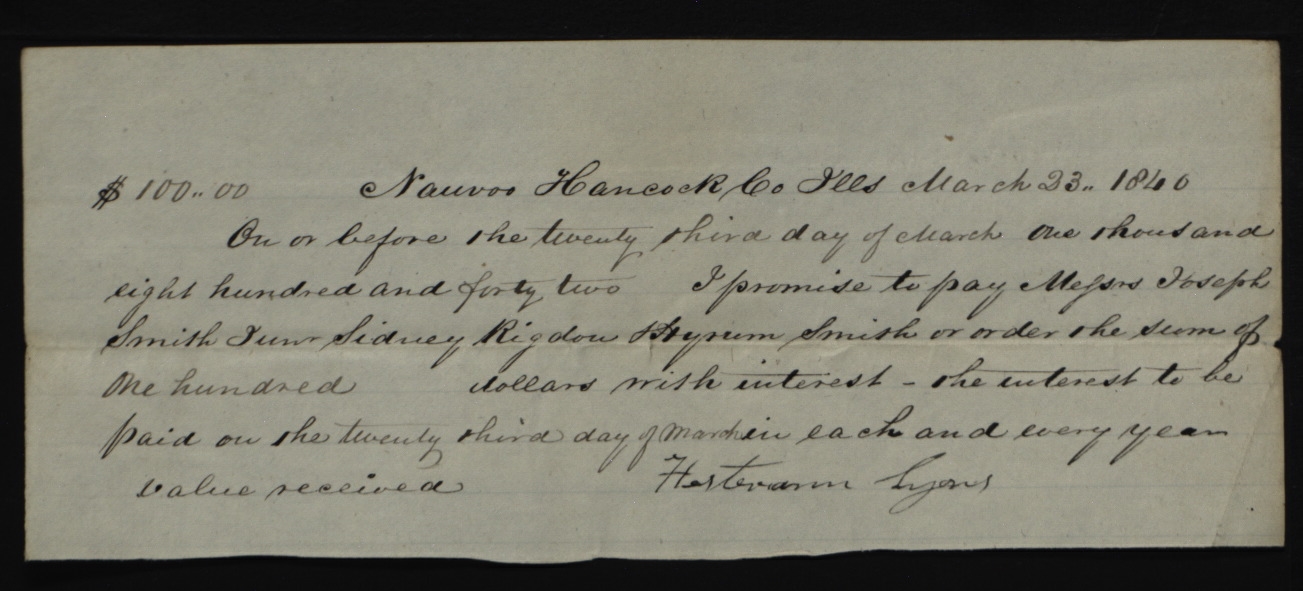 $ 100.. 00 Nauvoo Hancock Co Ills March 23.. 1840
On or before the twenty third day of March one thousand
eight hundred and forty two I promise to pay Messrs Joseph
Smith Junr Sidney Rigdon Hyrum Smith or order the sum of
One hundred dollars with interest - the interest to be
paid on the twenty third day of March in each and every year
value received Hesterann Lyons